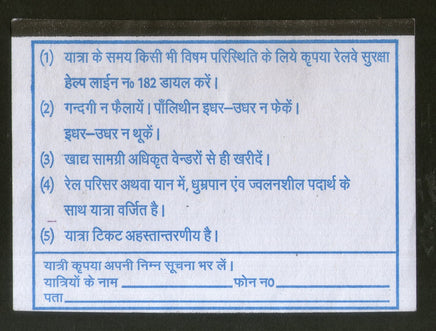 (1) यात्रा के समय किसी भी विषम परिस्थिति के लिये कृपया रेलवे सुरक्षा
हेल्प लाईन न० 182 डायल करें।
(2) गन्दगी न फैलायें। पॉंलिथीन इधर–उधर न फेकें।
इधर–उधर न थूकें।
(3) खाद्य सामग्री अधिकृत वेन्डरों से ही खरीदें।
(4) रेल परिसर अथवा यान में, धुम्रपान एंव ज्वलनशील पदार्थ के
साथ यात्रा वर्जित है।
(5) यात्रा टिकट अहस्तान्तरणीय है।
यात्री कृपया अपनी निम्न सूचना भर लें।
यात्रियों के नाम ____________ फोन न0 ____________
पता ____________